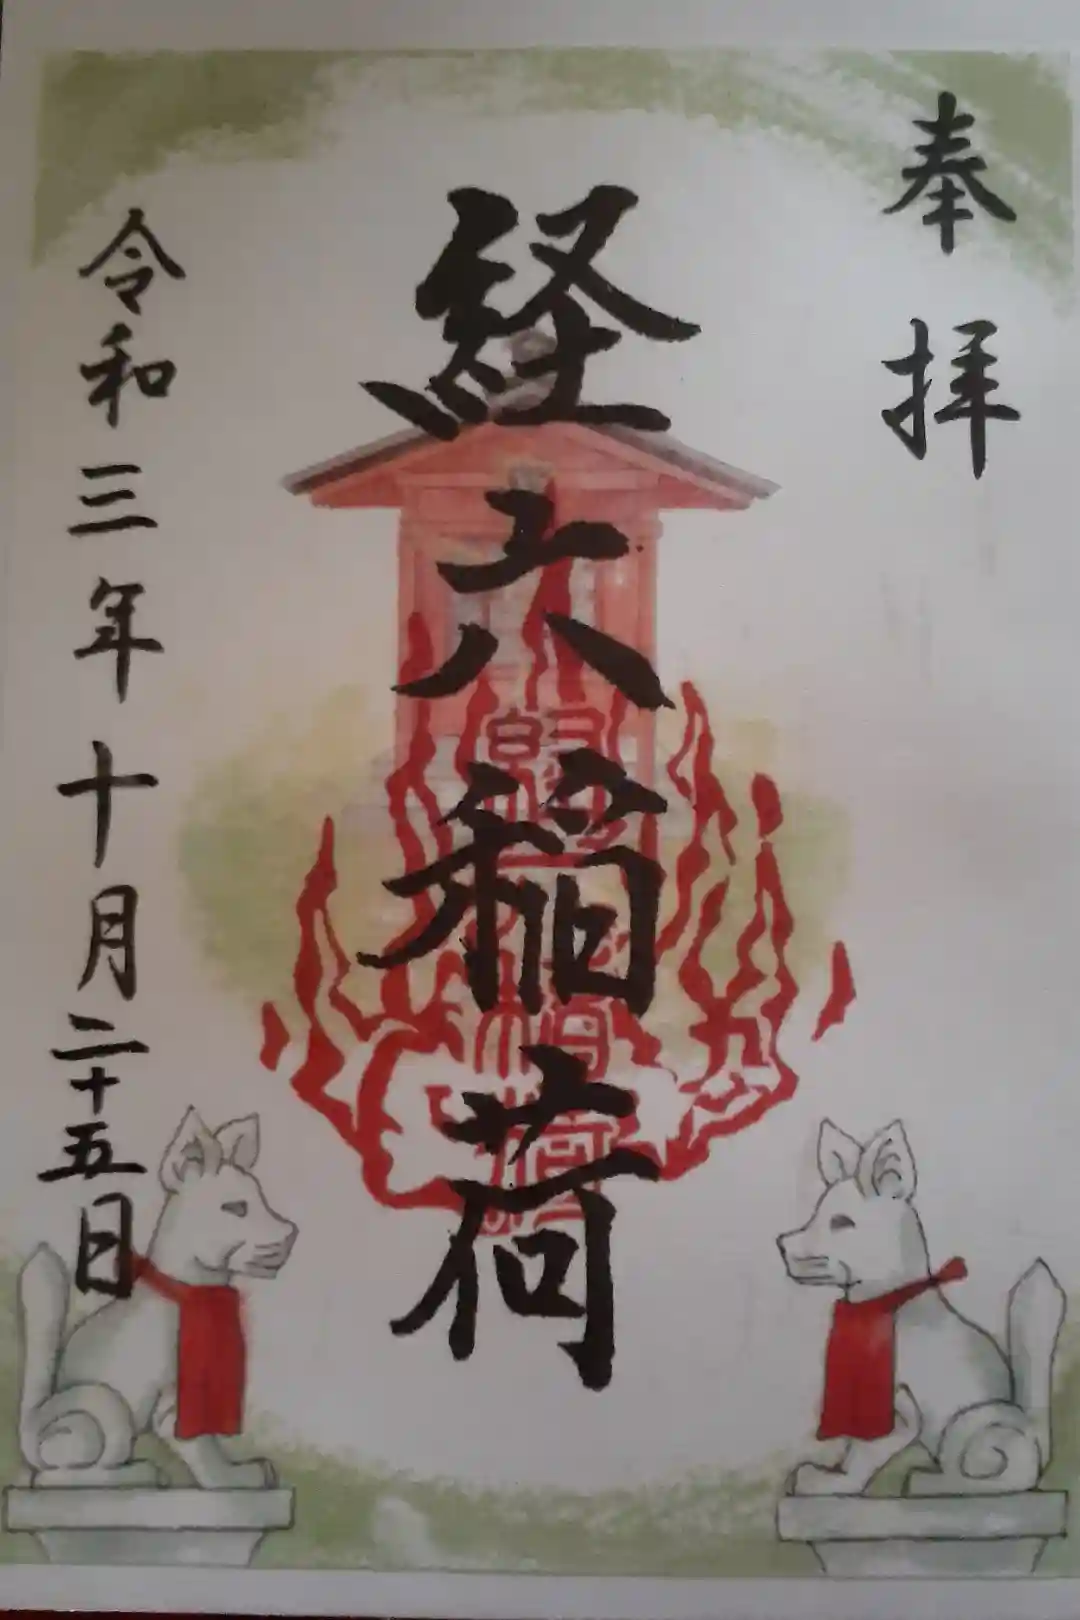 奉拝
経六稲荷
令和三年十月二十五日